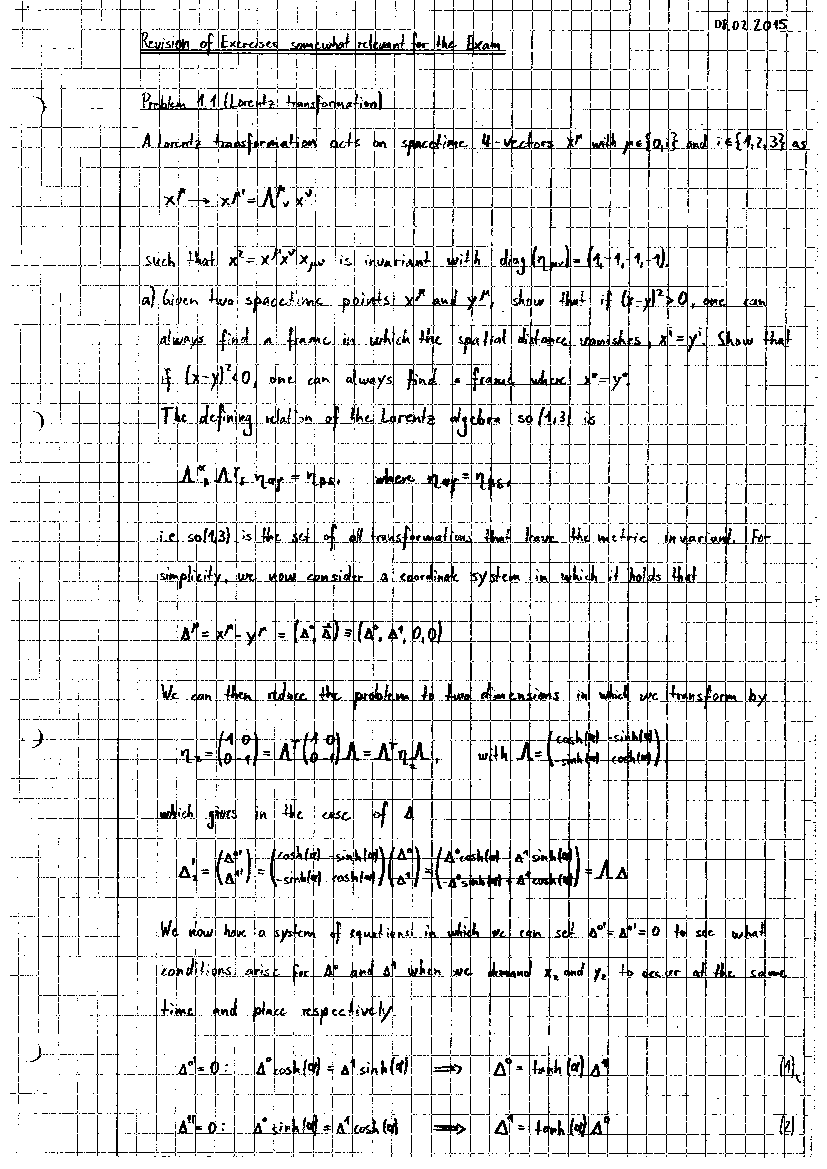 08.02.2015
Revision of Exercises somewhat relevant for the Exam
Problem 1.1 (Lorentz transformation)
A Lorentz transformation acts on spacetime 4-vectors x^μ with μ∈{0,i} and i∈{1,2,3} as
x^μ → x^μ' = Λ^μ_ν x^ν
such that x² = x^μ x^ν x_μν is invariant with diag(η_μν) = (1,-1,-1,-1).
a) Given two spacetime points x^μ and y^μ, show that if (x-y)²>0, one can
always find a frame in which the spatial distance vanishes, x^i = y^i. Show that
if (x-y)²<0, one can always find a frame where x⁰ = y⁰.
The defining relation of the Lorentz algebra so(1,3) is
Λ^α_β Λ^γ_δ η_αγ = η_βδ, where η_αγ = η_βδ,
i.e. so(1,3) is the set of all transformations that leave the metric invariant. For
simplicity, we now consider a coordinate system in which it holds that
Δ^μ = x^μ - y^μ = (Δ⁰, Δ⃗) ≡ (Δ⁰, Δ¹, 0, 0)
We can then reduce the problem to two dimensions in which we transform by
η₂ = (1 0; 0 -1) = Λ^T (1 0; 0 -1) Λ = Λ^T η₂ Λ, with Λ = (cosh(α) -sinh(α); -sinh(α) cosh(α))
which gives in the case of Δ
Δ₂' = (Δ⁰'; Δ¹') = (cosh(α) -sinh(α); -sinh(α) cosh(α)) (Δ⁰; Δ¹) = (Δ⁰cosh(α) - Δ¹sinh(α); -Δ⁰sinh(α) + Δ¹cosh(α)) = Λ Δ
We now have a system of equations in which we can set Δ⁰' = Δ¹' = 0 to see what
conditions arise for Δ⁰ and Δ¹ when we demand x₂ and y₂ to occur at the same
time and place respectively.
Δ⁰' = 0: Δ⁰cosh(α) = Δ¹sinh(α) ⟹ Δ⁰ = tanh(α) Δ¹ (1)
Δ¹' = 0: Δ⁰sinh(α) = Δ¹cosh(α) ⟹ Δ¹ = tanh(α) Δ⁰ (2)